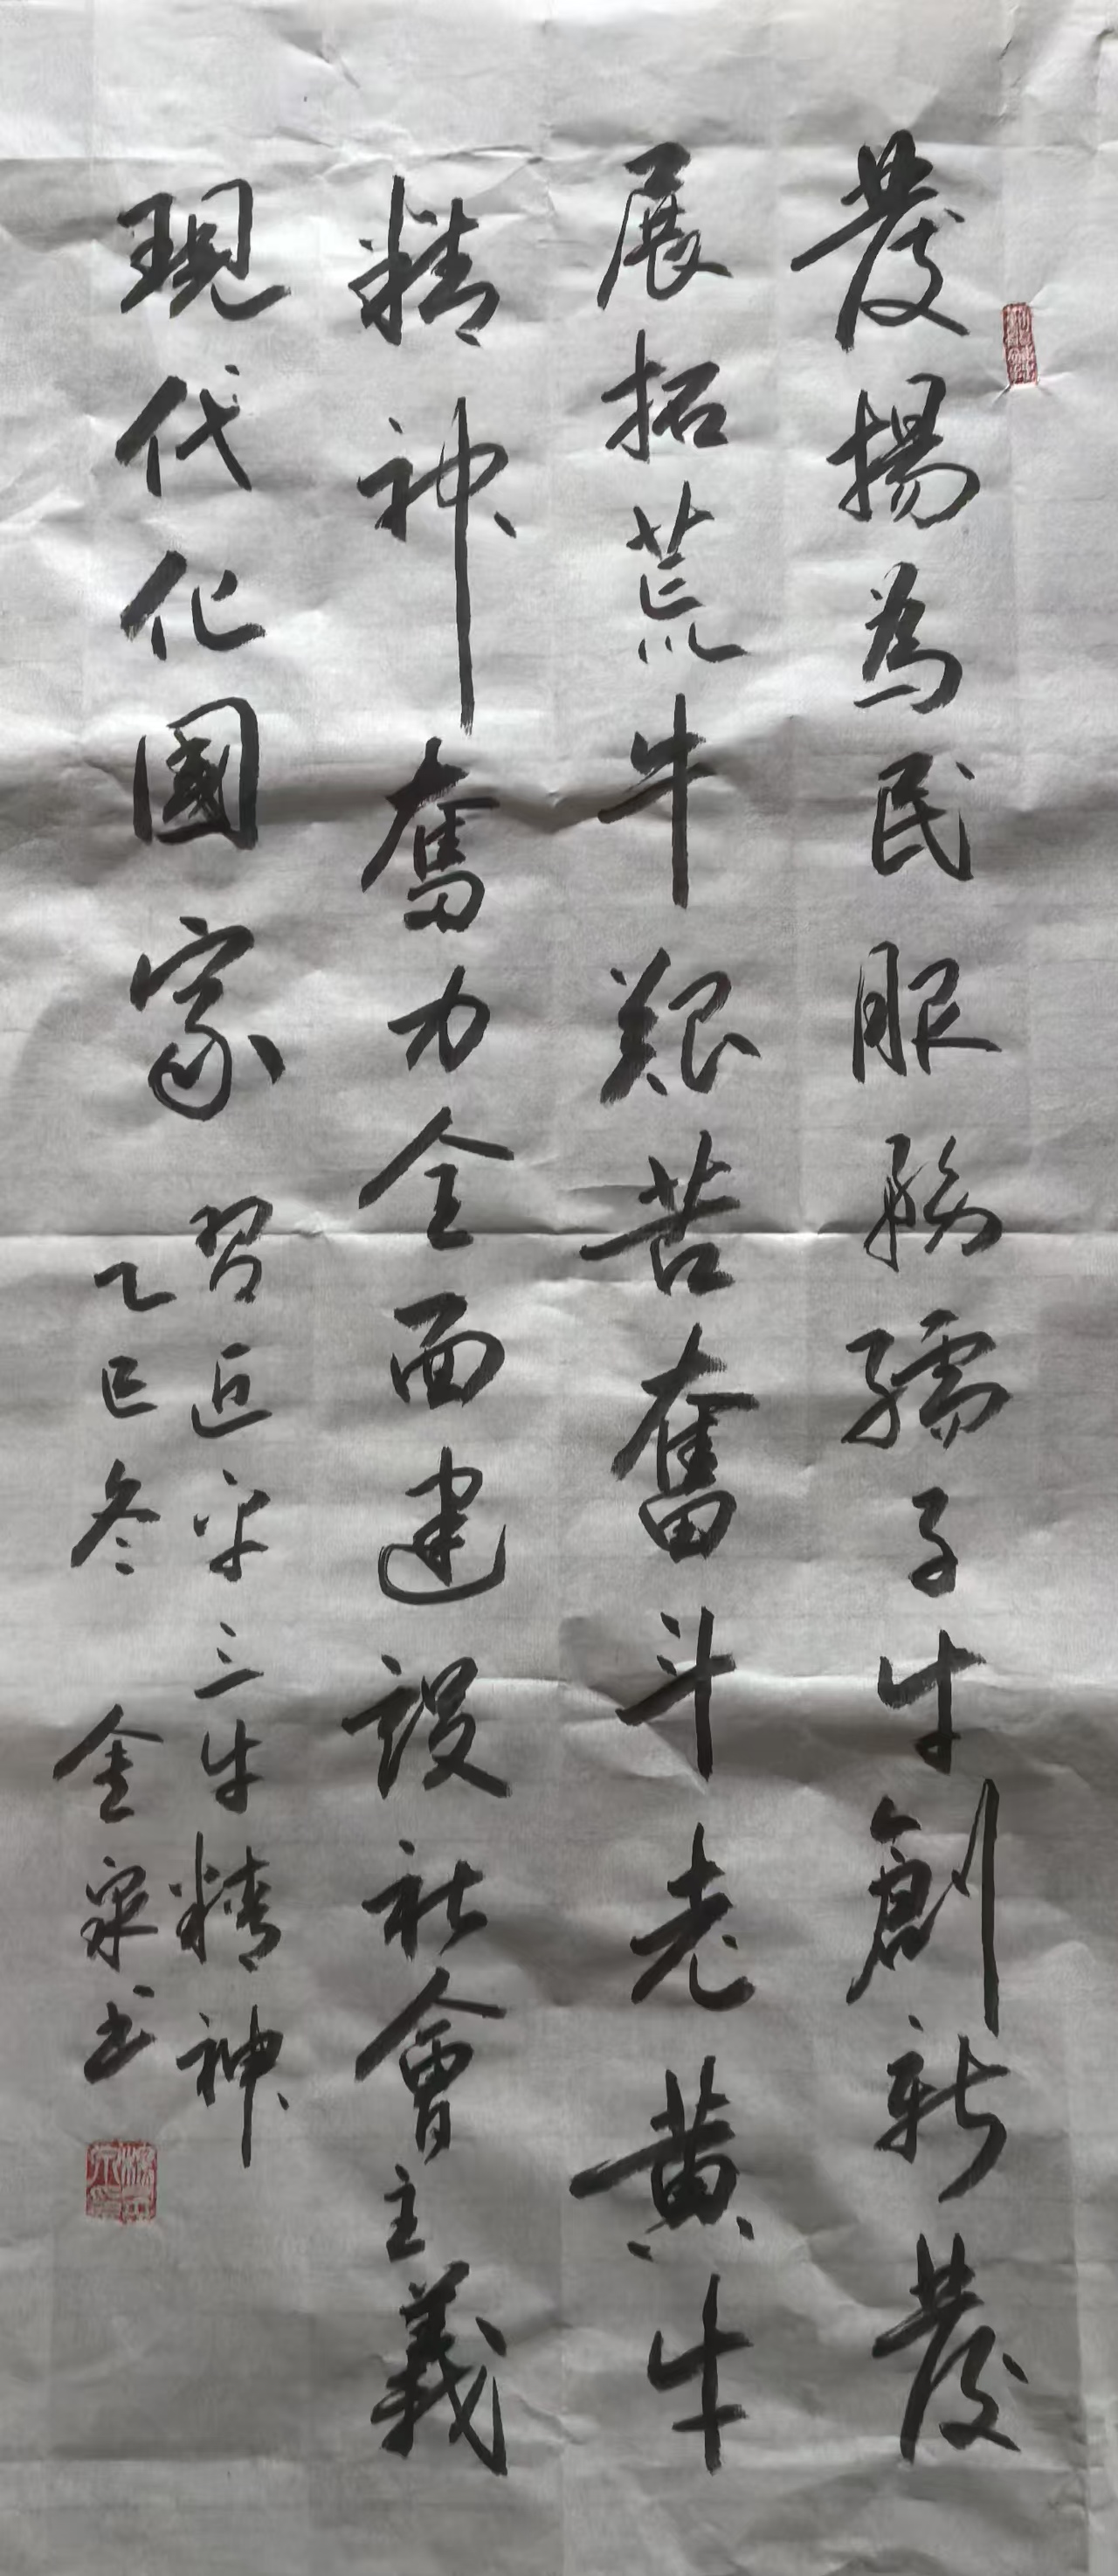 發揚為民服務孺子牛創新發
展拓荒牛艱苦奮斗老黄牛
精神奮力全面建設社會主義
現代化國家
習近平三牛精神
乙巳冬 金泉书